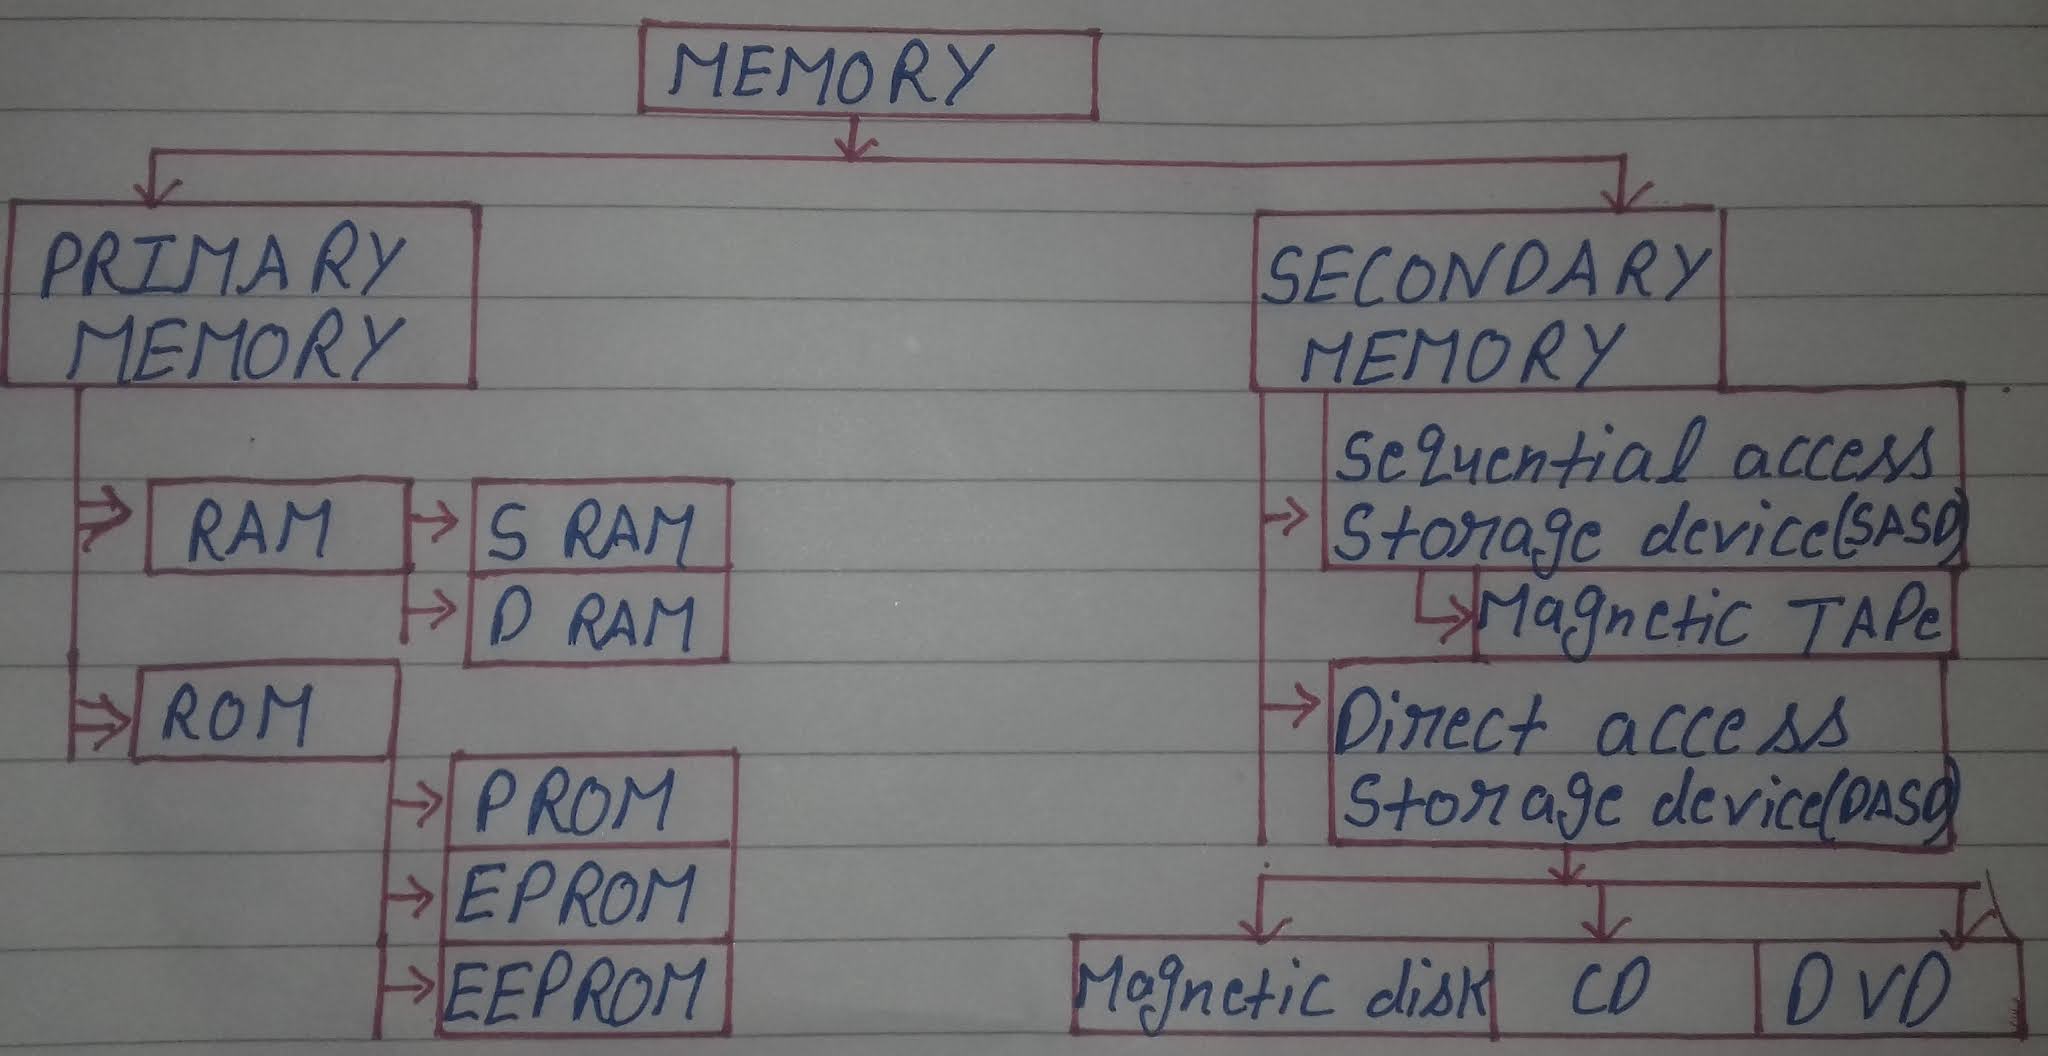 MEMORY
PRIMARY
MEMORY
RAM
S RAM
D RAM
ROM
PROM
EPROM
EEPROM
SECONDARY
MEMORY
Sequential access
Storage device(SASD)
Magnetic TAPe
Direct access
Storage device(DASD)
Magnetic disk
CD
DVD